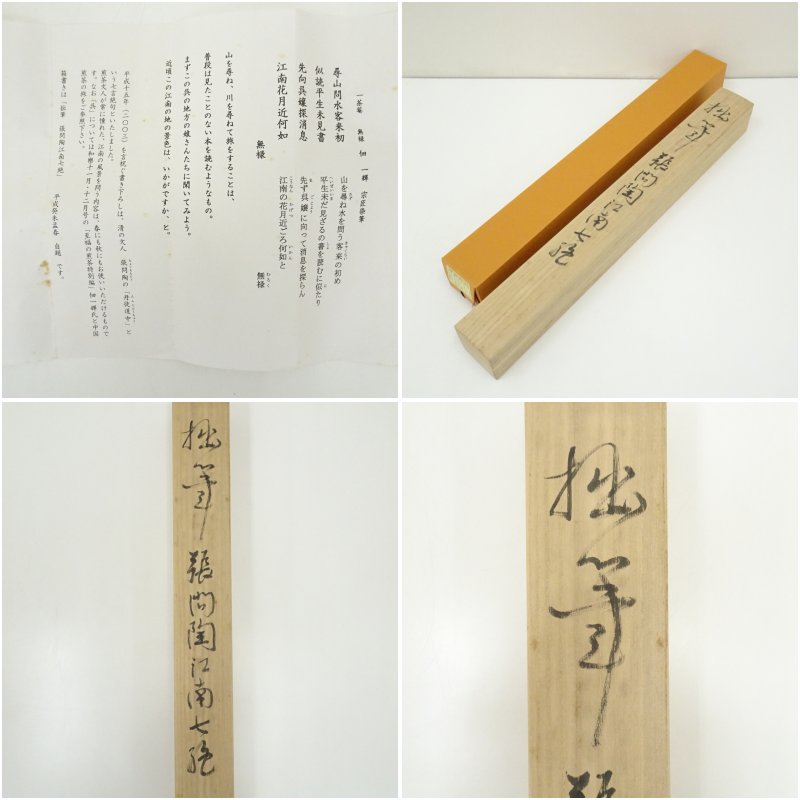 一茶菴 無禄 佃 一輝 宗匠染筆
尋山問水客来初
似読平生未見書
先向呉嬢探消息
江南花月近何如
無禄
山を尋ね水を問う客来の初め
平生未だ見ざるの書を読むに似たり
先ず呉嬢に向って消息を探らん
江南の花月近ごろ何如と
無禄
山を尋ね、川を尋ねて旅をすることは、
普段は見たことのない本を読むようなもの。
まずこの呉の地方の娘さんたちに聞いてみよう。
近頃この江南の地の景色は、いかがですか、と。
平成十五年(二〇〇三)を言祝ぐ書き下ろしは、清の文人 張問陶の「丹徒道中」と
いう七言絶句といたしました。
煎茶文人が常に憧れた、江南の風景を問う内容は、春にも秋にもお使いいただけるもので
す。なお「呉」については和樂十一月・十二月号の「至福の煎茶特別編」佃一輝氏と中国
煎茶の旅をご参照下さい。
箱書きは「拙筆 張問陶江南七絶」 平成癸未孟春 自題 です。
拙筆 張問陶江南七絶
拙筆 張問陶江南七絶
拙筆 張